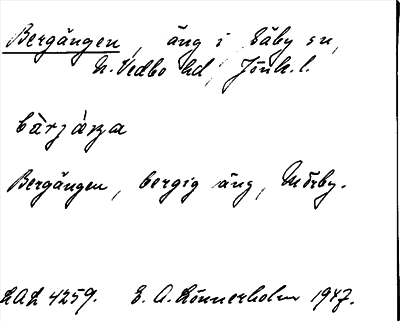 Bergängen, äng i Säby sn,
N. Vedbo hd, Jönk. l.
bàrjæŋa
Bergängen, bergig äng, Mörby.
LAL 4259. E. A. Rönnerholm 1947.